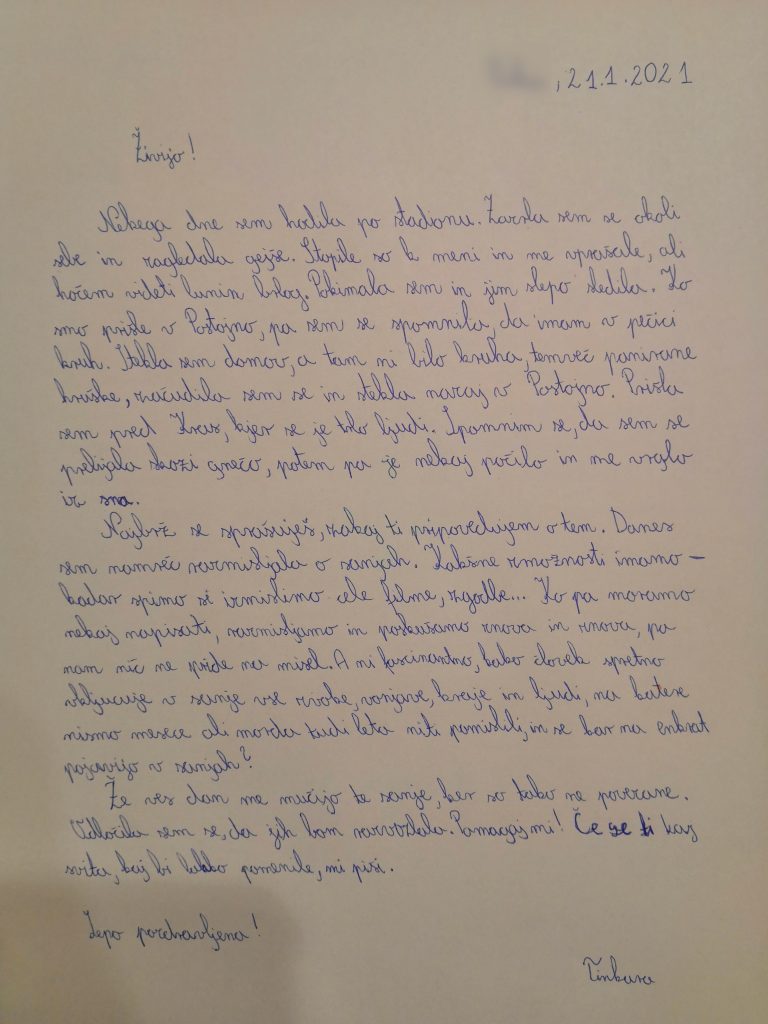 , 21.1.2021
Živijo!
Nekega dne sem hodila po stadionu. Zazrla sem se okoli
sebe in zagledala gejše. Stopile so k meni in me vprašale, ali
hočem videti lunin brlog. Pokimala sem in jim slepo sledila. Ko
smo prišle v Postojno, pa sem se spomnila, da imam v pečici
kruh. Stekla sem domov, a tam ni bilo kruha, temveč panirane
hruške, začudila sem se in stekla nazaj v Postojno. Prišla
sem pred Kras, kjer se je trlo ljudi. Spomnim se, da sem se
prebijala skozi gnečo, potem pa je nekaj počilo in me vrglo
iz sna.
Najbrž se sprašuješ, zakaj ti pripovedujem o tem. Danes
sem namreč razmišljala o sanjah. Kakšne zmožnosti imamo –
kadar spimo si izmislimo cele filme, zgodbe... Ko pa moramo
nekaj napisati, razmišljamo in poskušamo znova in znova, pa
nam nič ne pride na misel. A ni fascinantno, kako človek spretno
vključuje v sanje vse zvoke, vonjave, kraje in ljudi, na katere
nismo mesece ali morda tudi leta niti pomislili, in se kar na enkrat
pojavijo v sanjah?
Že ves dan me mučijo te sanje, ker so tako ne povezane.
Odločila sem se, da jih bom razvozlala. Pomagaj mi! Če se ti kaj
svita, kaj bi lahko pomenile, mi piši.
Lepo pozdravljena!
Tinkara